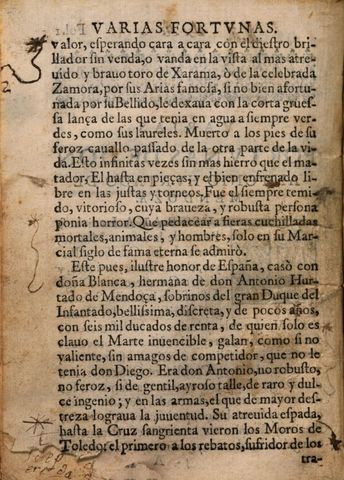 VARIAS FORTVNAS.
valor, esperando cara a cara con el diestro bri-
llador sin venda, o vanda en la vista al mas atre-
uido y brauo toro de Xarama, ò de la celebrada
Zamora, por sus Arias famosa, si no bien afortu-
nada por su Bellido, le dexaua con la corta gruess-
sa lança de las que tenia en agua siempre ver-
des, como sus laureles. Muerto a los pies de su
feroz cauallo passado de la otra parte de la vi-
da. Esto infinitas vezes sin mas hierro que el ma-
tador, El hasta en pieças, y el bien enfrenado li-
bre en las justas y torneos. Fue el siempre temi-
do, vitorioso, cuya braueza, y robusta persona
ponia horror. Que pedacear a fieras cuchilladas
mortales, animales, y hombres, solo en su Mar-
cial siglo de fama eterna se admirò.
Este pues, ilustre honor de España, casò con
doña Blanca, hermana de don Antonio Hur-
tado de Mendoça, sobrinos del gran Duque del
Infantado, bellissima, discreta, y de pocos años,
con seis mil ducados de renta, de quien solo es
clauo el Marte inuencible, galan, como si no
valiente, sin amagos de competidor, que no le
tenia don Diego. Era don Antonio, no robusto,
no feroz, si de gentil, ayroso talle, de raro y dul-
ce ingenio; y en las armas, el que de mayor des-
treza lograua la juuentud. Su atreuida espada,
hasta la Cruz sangrienta vieron los Moros de
Toledo: el primero a los rebatos, sufridor de los
tra-